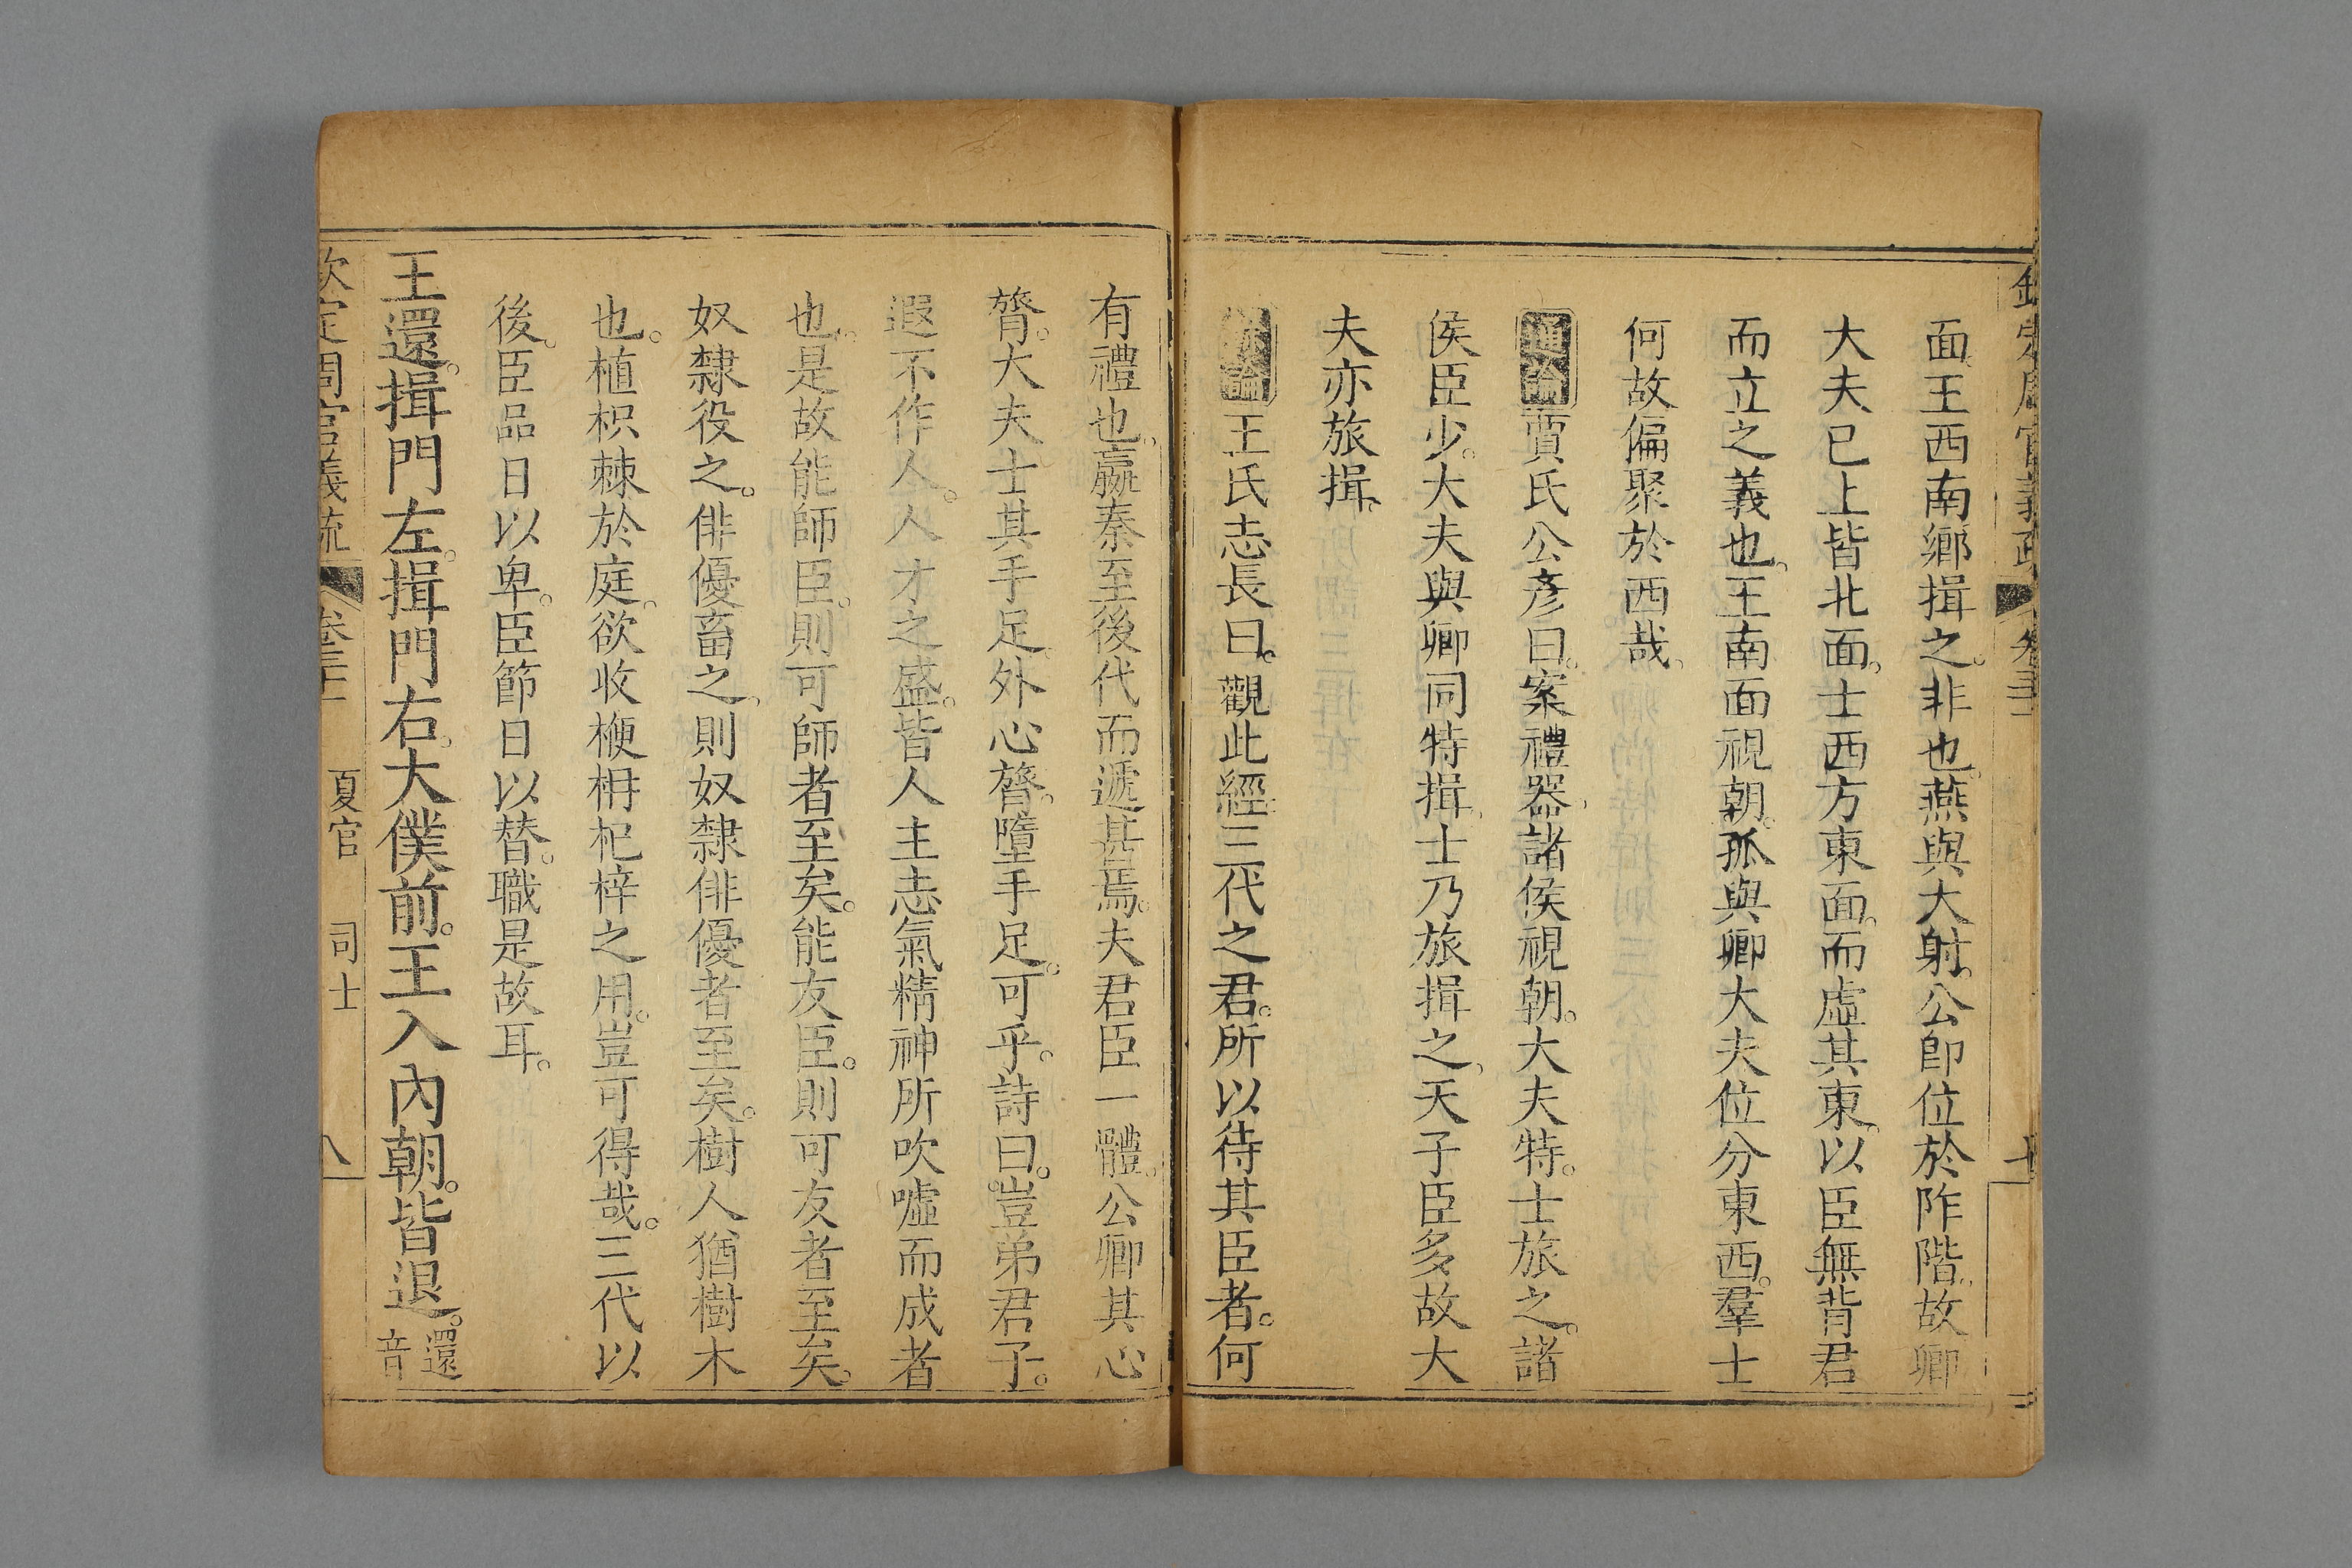 面王西南鄉揖之非也燕與大射公卽位於阼階故卿
大夫已上皆北面士西方東面而虛其東以臣無背君
而立之義也王南面視朝孤與卿大夫位分東西羣士
何故偏聚於西哉
通論賈氏公彥曰案禮器諸侯視朝大夫特士旅之諸
侯臣少大夫與卿同特揖士乃旅揖之天子臣多故大
夫亦旅揖
餘論王氏志長曰觀此經三代之君所以待其臣者何
有禮也嬴秦至後代而遞甚焉夫君臣一體公卿其心
膂大夫士其手足外心膂墮手足可乎詩曰豈弟君子
遐不作人人才之盛皆人主志氣精神所吹噓而成者
也是故能師臣則可師者至矣能友臣則可友者至矣
奴隸役之俳優畜之則奴隸俳優者至矣樹人猶樹木
也植枳棘於庭欲收楩枏杞梓之用豈可得哉三代以
後臣品日以卑臣節日以替職是故耳
王還揖門左揖門右大僕前王入內朝皆退還音
欽定周官義疏 卷三十一 夏官 司士 八